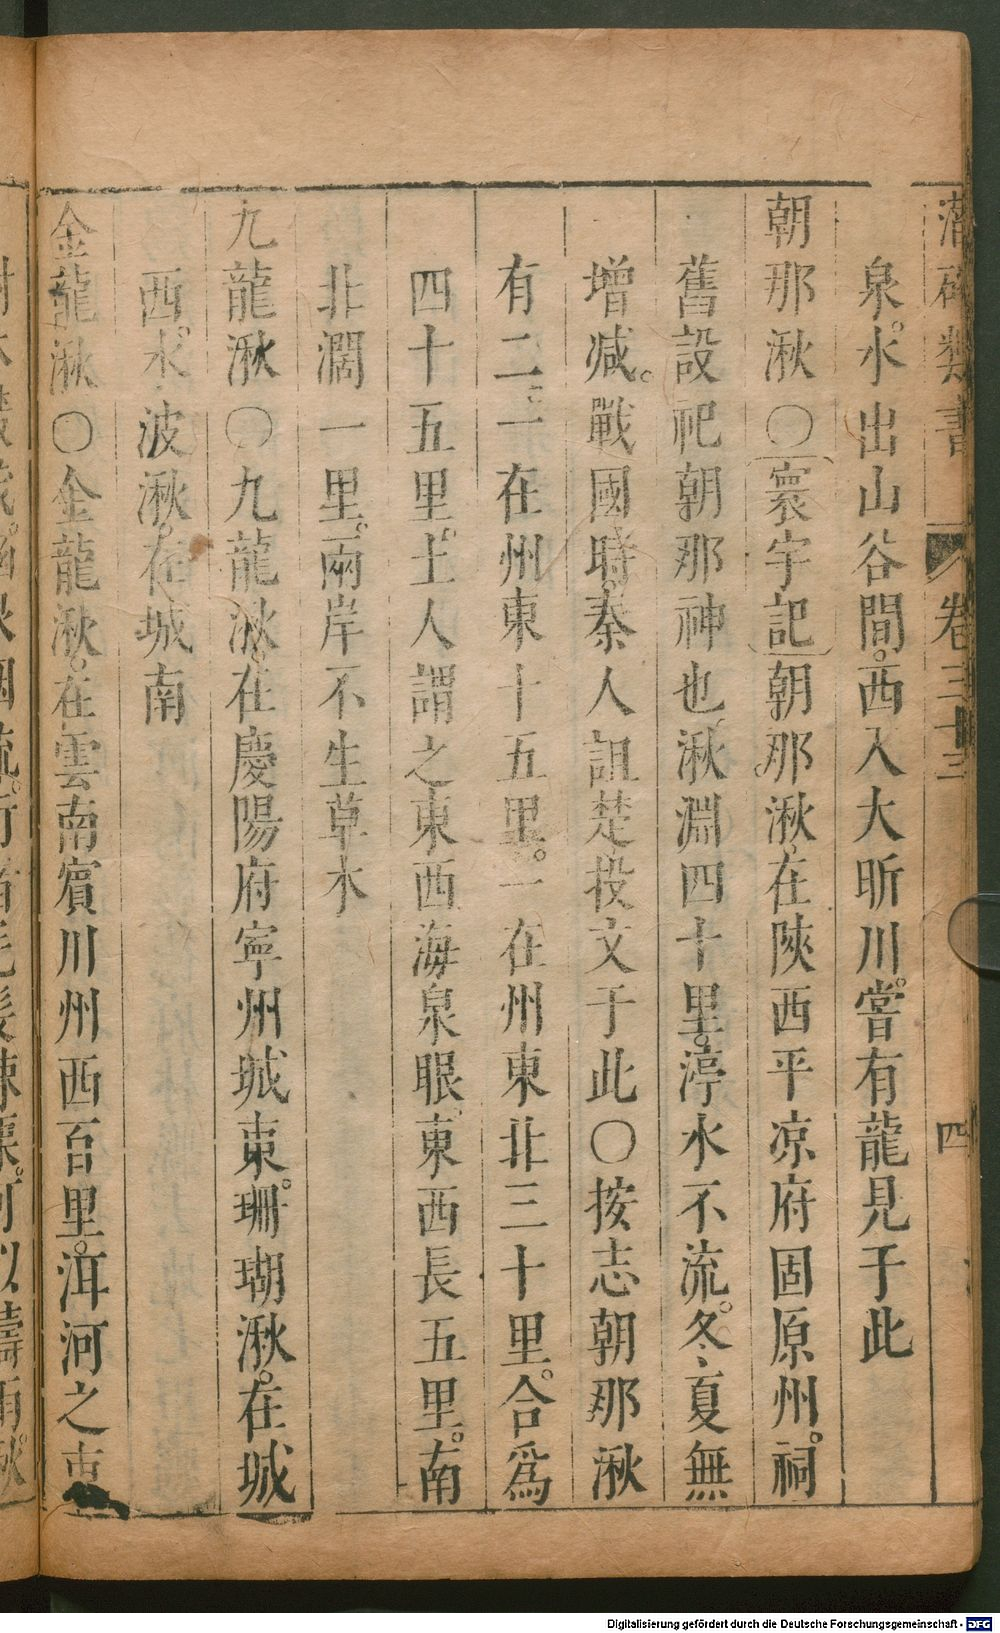 潛確類書 卷三十三 四
泉。水出山谷間。西入大昕川。嘗有龍見于此
朝那湫〇寰宇記朝那湫在陝西平凉府固原州。祠
舊設祀朝那神也湫淵四十里。渟水不流。冬夏無
增减。戰國時秦人詛楚投文于此〇按志朝那湫
有二一在州東十五里。一在州東北三十里。合爲
四十五里。土人謂之東西海泉眼。東西長五里。南
北濶一里。兩岸不生草木
九龍湫〇九龍湫。在慶陽府寧州城東。珊瑚湫。在城
西。水波湫。在城南
金龍湫〇金龍湫。在雲南賓川州西百里。洱河之東
Digitalisierung gefördert durch die Deutsche Forschungsgemeinschaft - DFG